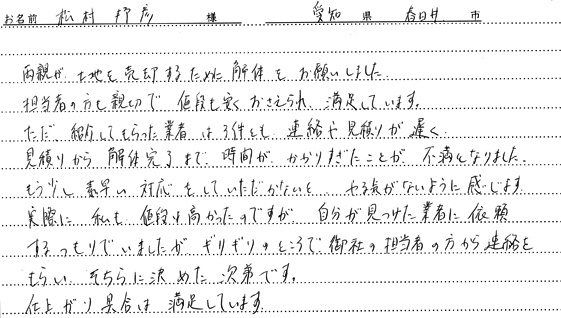 お名前 松村 邦彦 様 愛知 県 春日井 市
両親が、土地を売却するために解体をお願いしました。
担当者の方も親切で値段も安くおさえられ、満足しています。
ただ、紹介してもらった業者は3件とも連絡や見積りが遅く、
見積りから解体完了まで時間がかかりすぎたことが不満となりました。
もう少し素早い対応をしていただかないと、やる気がないように感じます。
実際に私も値段は高かったのですが自分が見つけた業者に依頼
するつもりでいましたがギリギリのところで御社の担当者の方から連絡を
もらい、そちらに決めた次第です。
仕上がり具合は満足しています。